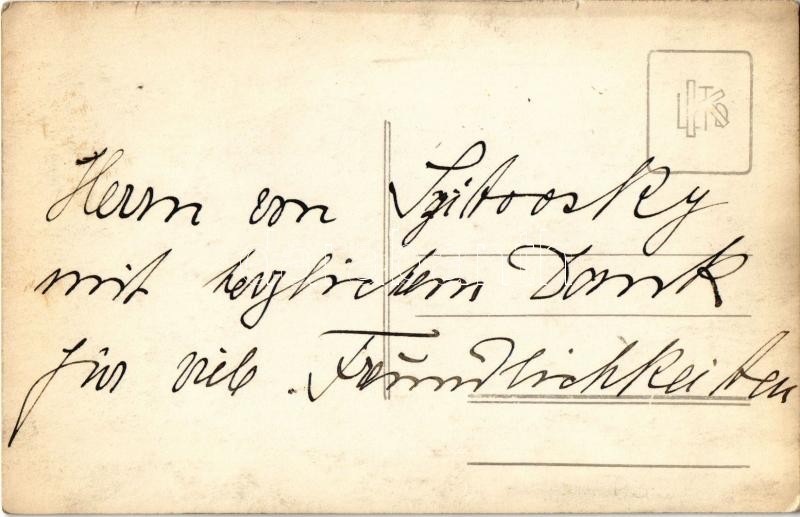 Herrn von Szitovsky
mit herzlichem Dank
für viele Freundlichkeiten